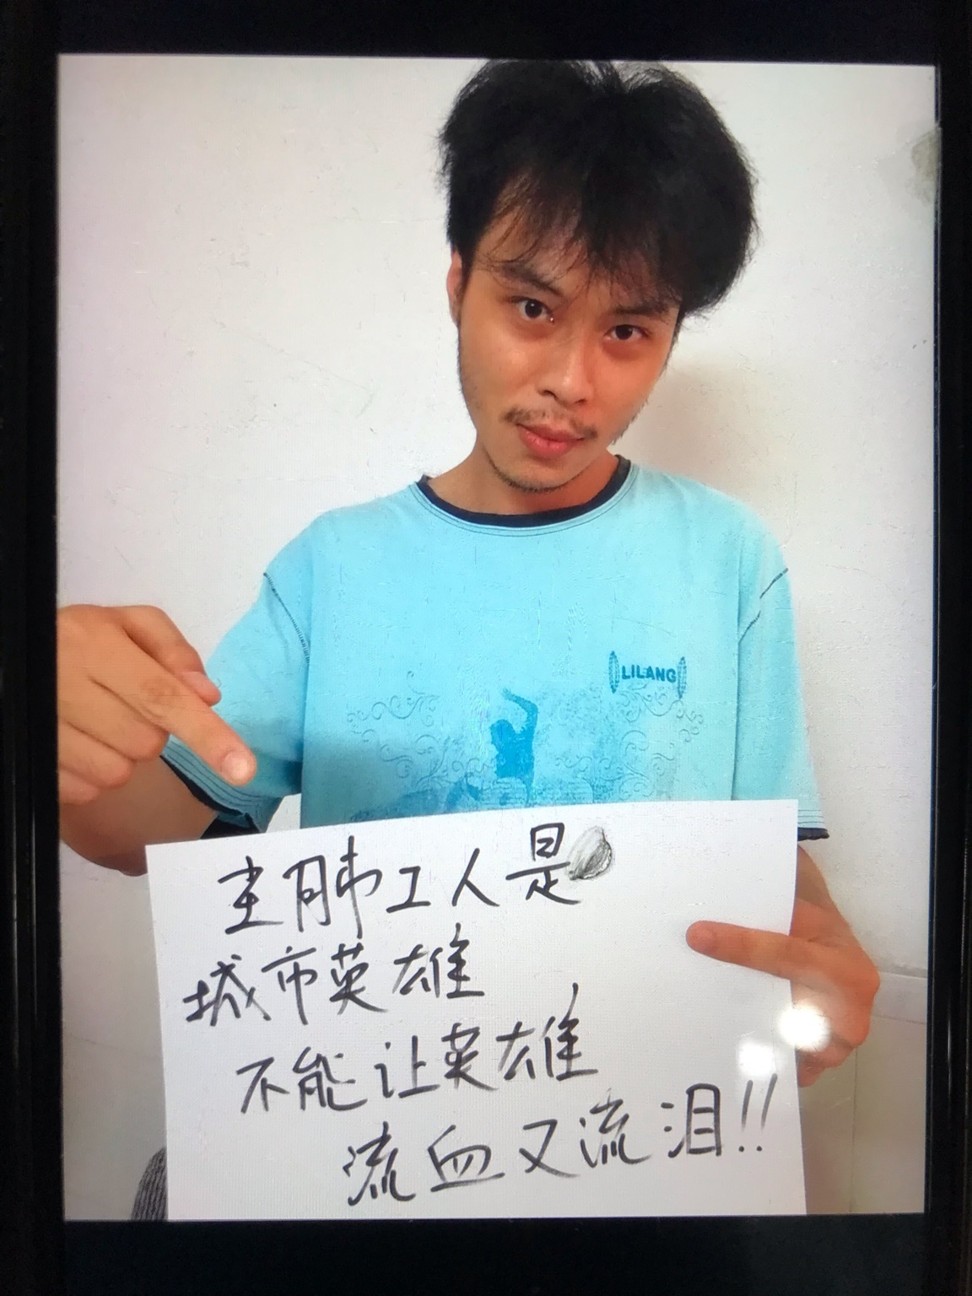 LILANG
尘肺工人是
城市英雄
不能让英雄
流血又流泪!!